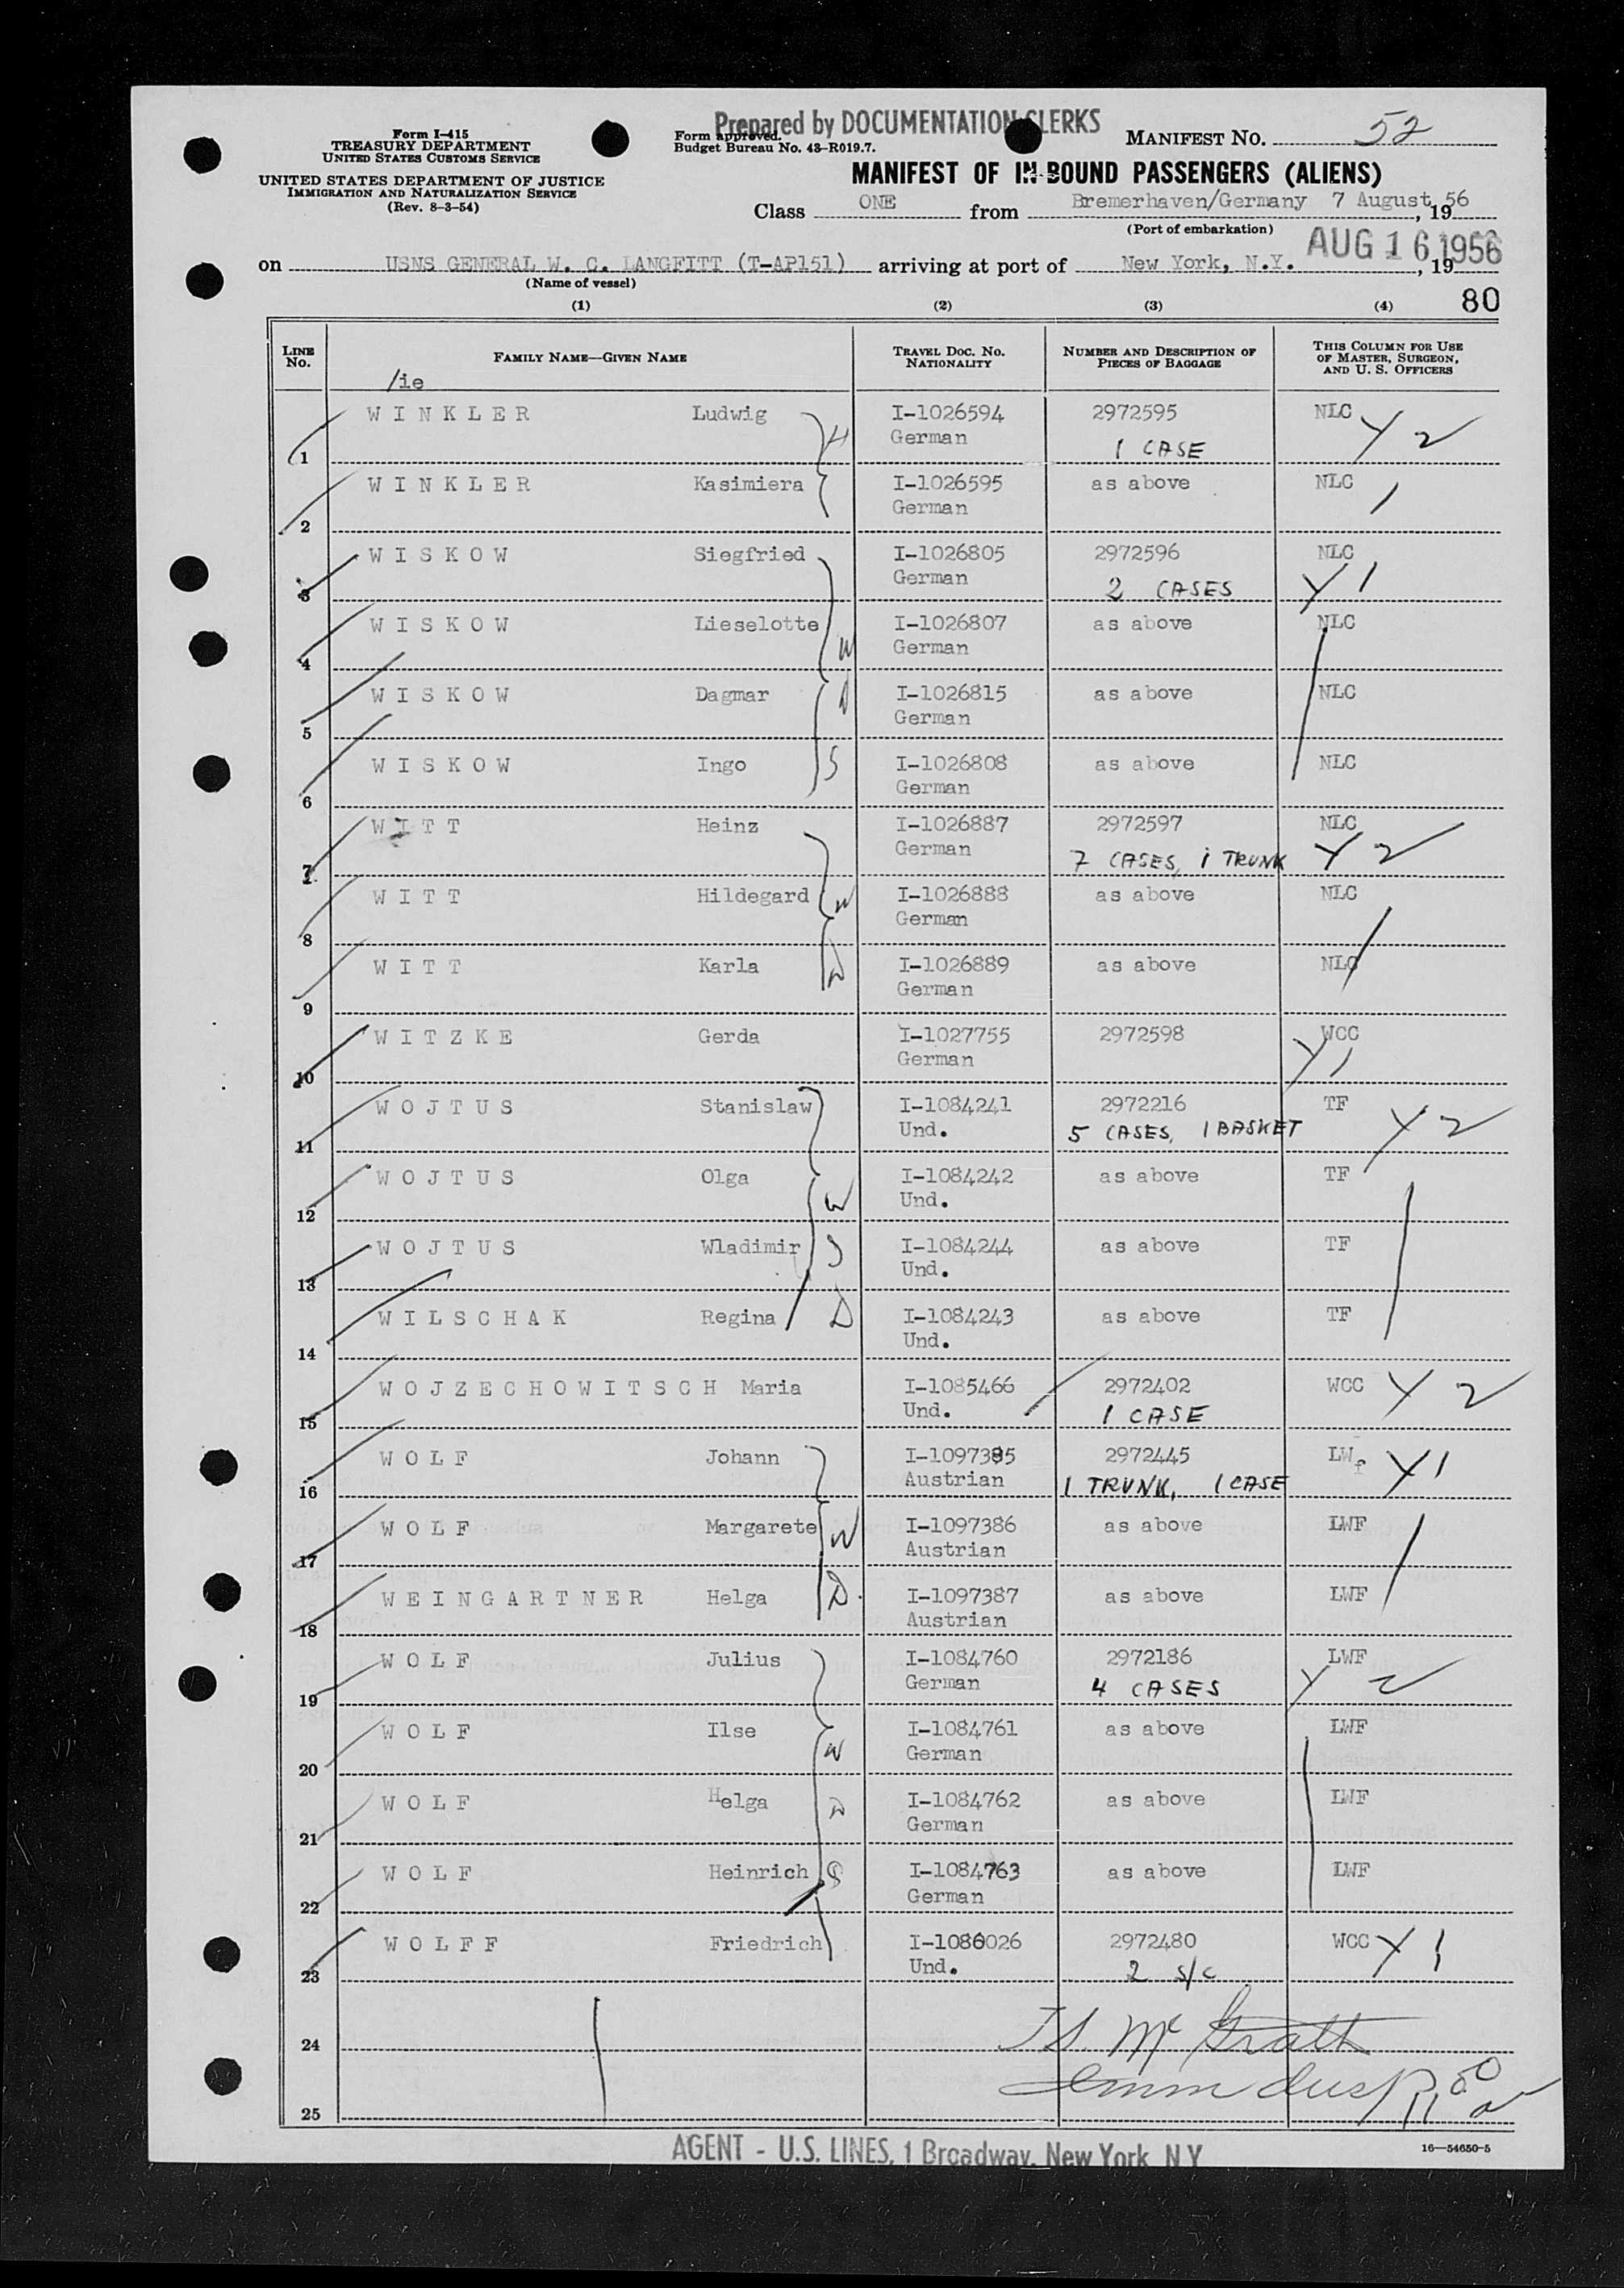 Prepared by DOCUMENTATION CLERKS
Form I-415
TREASURY DEPARTMENT
UNITED STATES CUSTOMS SERVICE
UNITED STATES DEPARTMENT OF JUSTICE
IMMIGRATION AND NATURALIZATION SERVICE
(Rev. 8-3-54)
Form approved.
Budget Bureau No. 43-R019.7.
MANIFEST NO. 52
MANIFEST OF IN-BOUND PASSENGERS (ALIENS)
Class ONE from Bremerhaven/Germany 7 August, 1956
(Port of embarkation)
AUG 16 1956
on USNS GENERAL W. C. LANGFITT (T-AP151) arriving at port of New York, N.Y. , 19
(Name of vessel)
(1) (2) (3) (4) 80
LINE No. FAMILY NAME—GIVEN NAME TRAVEL DOC. NO. NATIONALITY NUMBER AND DESCRIPTION OF PIECES OF BAGGAGE THIS COLUMN FOR USE OF MASTER, SURGEON, AND U. S. OFFICERS
/ie
WINKLER Ludwig I-1026594 2972595 NLC
1 H German 1 CASE Y 2
WINKLER Kasimiera I-1026595 as above NLC
2 German /
WISKOW Siegfried I-1026805 2972596 NLC
3 German 2 CASES Y 1
WISKOW Lieselotte I-1026807 as above NLC
4 W German
WISKOW Dagmar D I-1026815 as above NLC
5 German
WISKOW Ingo S I-1026808 as above NLC
6 German
WITT Heinz I-1026887 2972597 NLC
7 German 7 CASES, 1 TRUNK Y 2
WITT Hildegard W I-1026888 as above NLC
8 German
WITT Karla D I-1026889 as above NLC
9 German
WITZKE Gerda I-1027755 2972598 WCC
10 German Y 1
WOJTUS Stanislaw I-1084241 2972216 TF
11 Und. 5 CASES, 1 BASKET Y 2
WOJTUS Olga W I-1084242 as above TF
12 Und.
WOJTUS Wladimir S I-1084244 as above TF
13 Und.
WILSCHAK Regina D I-1084243 as above TF
14 Und.
WOJZECHOWITSCH Maria I-1085466 2972402 WCC Y 2
15 Und. 1 CASE
WOLF Johann I-1097385 2972445 LWF Y 1
16 Austrian 1 TRUNK, 1 CASE
WOLF Margarete W I-1097386 as above LWF
17 Austrian
WEINGARTNER Helga D I-1097387 as above LWF
18 Austrian
WOLF Julius I-1084760 2972186 LWF
19 German 4 CASES Y 2
WOLF Ilse W I-1084761 as above LWF
20 German
WOLF Helga D I-1084762 as above LWF
21 German
WOLF Heinrich S I-1084763 as above LWF
22 German
WOLFF Friedrich I-1086026 2972480 WCC Y 1
23 Und. 2 S/C
24 McGrath
25
AGENT - U.S. LINES, 1 Broadway, New York N Y
16—54650-5